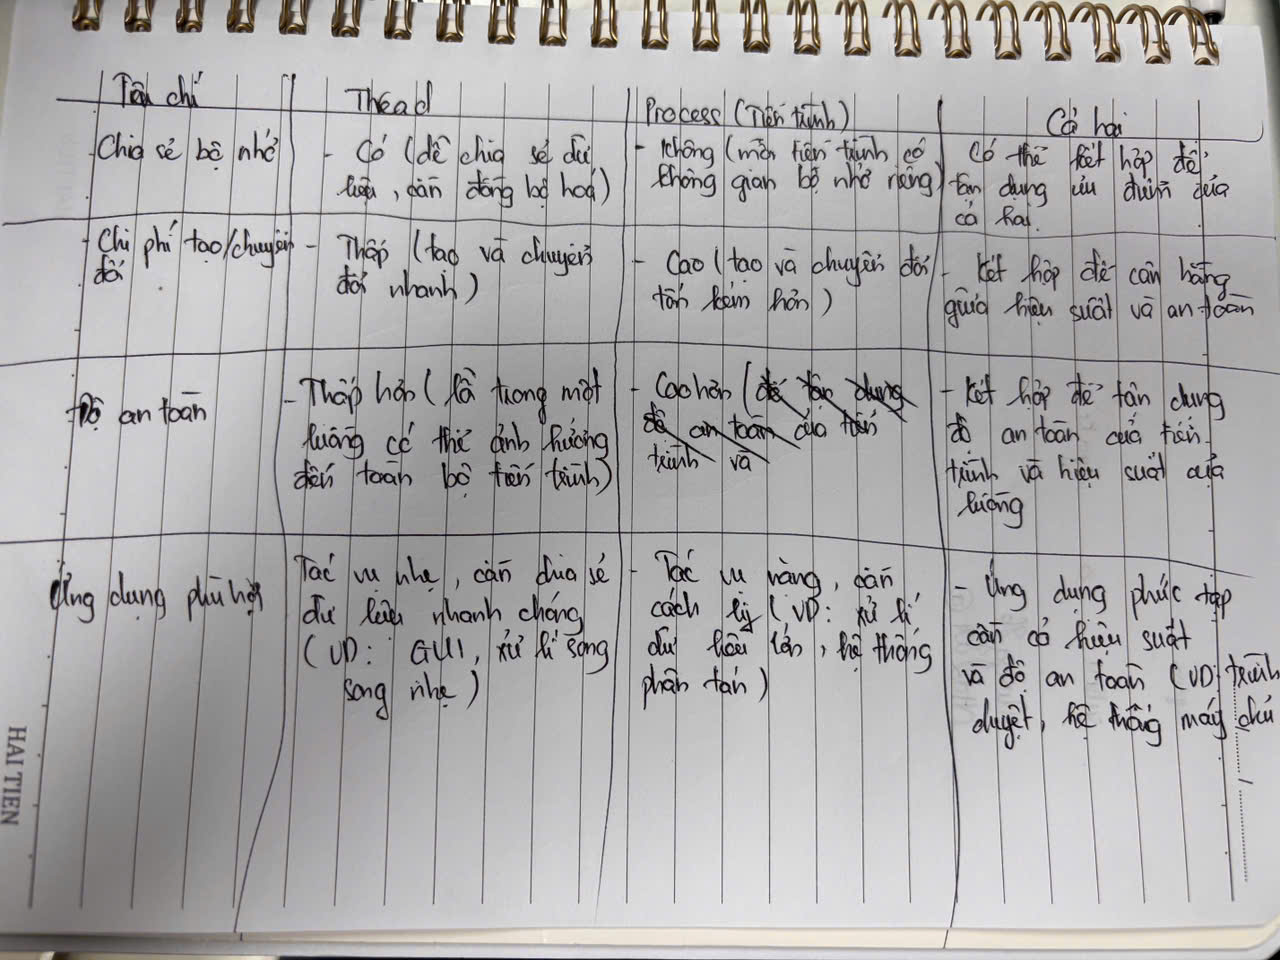 Tiêu chí
Thead
Process (Tiến trình)
Cả hai
Chia sẻ bộ nhớ
- Có (dễ chia sẻ dữ
liệu, cần đồng bộ hoá)
- Không (mỗi tiến trình có
không gian bộ nhớ riêng)
Có thể kết hợp để
tận dụng ưu điểm của
cả hai.
Chi phí tạo/chuyển
đổi
- Thấp (tạo và chuyển
đổi nhanh)
- Cao (tạo và chuyển đổi
tốn kém hơn)
- Kết hợp để cân bằng
giữa hiệu suất và an toàn
Độ an toàn
- Thấp hơn (lỗi trong một
luồng có thể ảnh hưởng
đến toàn bộ tiến trình)
- Cao hơn (để tận dụng
độ an toàn của tiến
trình và
- Kết hợp để tận dụng
độ an toàn của tiến
trình và hiệu suất của
luồng
Ứng dụng phù hợp
Tác vụ nhẹ, cần chia sẻ
dữ liệu nhanh chóng
(VD: GUI, xử lí song
song nhẹ)
- Tác vụ nặng, cần
cách ly (VD: xử lí
dữ liệu lớn, hệ thống
phân tán)
- Ứng dụng phức tạp
cần có hiệu suất
và độ an toàn (VD: trình
duyệt, hệ thống máy chủ
HAI TIEN